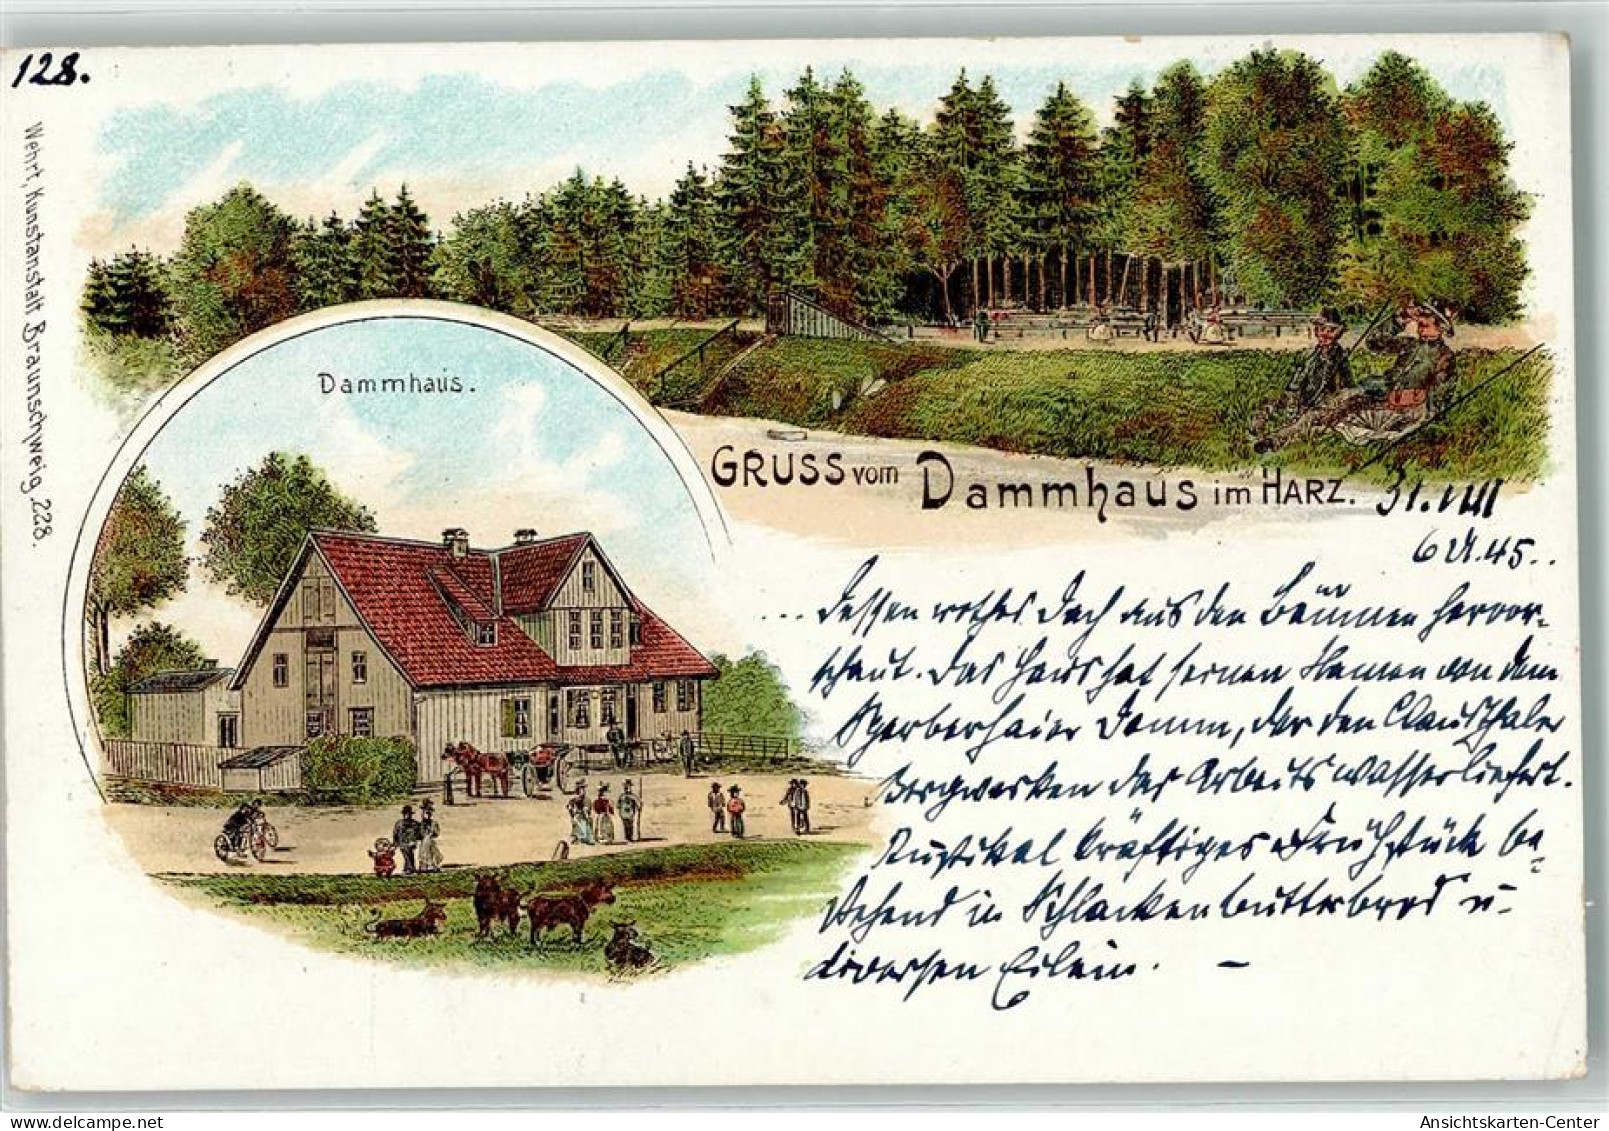 128.
Wehrt, Kunstanstalt Braunschweig. 228.
Dammhaus.
GRUSS vom Dammhaus im HARZ.
31. VIII
6 U. 45..
... dessen rothes Dach aus den Bäumen hervor-
schaut. Das Haus hat seinen Namen von dem
Sperberhaier Damm, der den Clausthaler
Bergwerken das Arbeitswasser liefert.
Rustikal kräftiges Frühstück be-
stehend in Schlackenbutterbrod u.
diversen Gilein. –
Ansichtskarten-Center